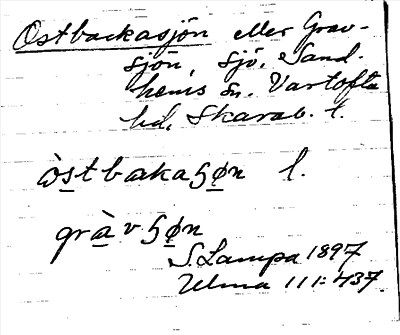 Ostbackasjön eller Grav-
sjön, sjö, Sand-
hems sn. Vartofta
hd, Skarab. l.
òstbakaʃøn l.
gràvʃøn
S. Lampa 1897
Ulma 111:437.